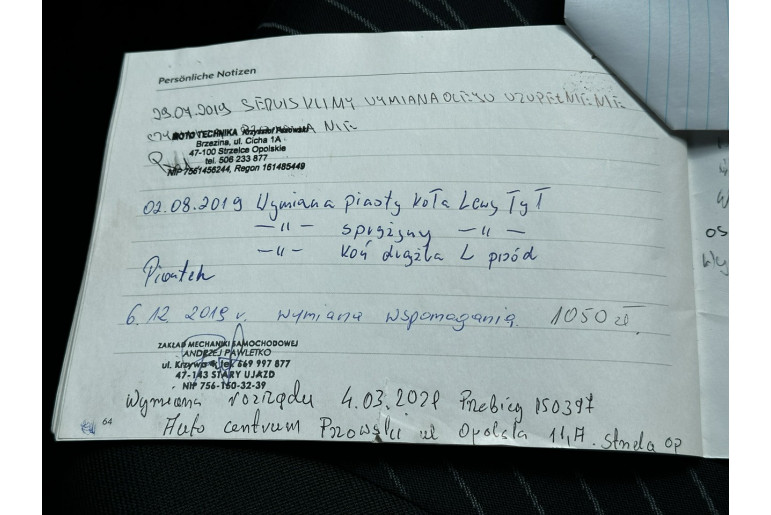 Persönliche Notizen
29.07.2019 SERWIS KLIMY WYMIANA OLEJU UZUPEŁNIENIE
MOTO TECHNIKA Krzysztof
Brzezina, ul. Cicha 1A
47-100 Strzelce Opolskie
tel. 506 233 877
NIP 7561456244, Regon 161485449
02.08.2019 Wymiana piasty koła Lewy Tył
—"— sprężyny —"—
—"— koń drążka L przód
6.12 2019 r. wymiana wspomagania 1050 zł
ZAKŁAD MECHANIKI SAMOCHODOWEJ
ANDRZEJ PAWLETKO
ul. Krzywa 4, tel. 669 997 877
47-143 STARY UJAZD
NIP 756-150-32-39
Wymiana rozrządu 4.03.2021 Przebieg 150397
Auto centrum ul Opolska 11A. op
64